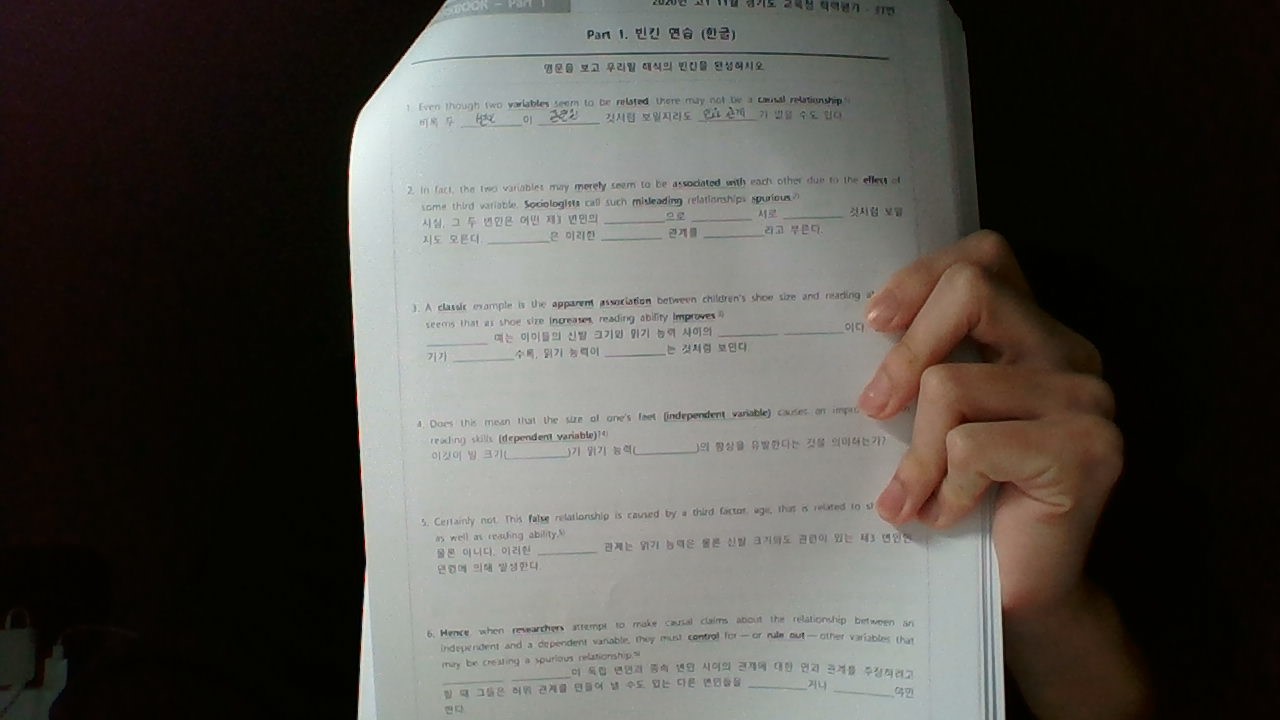 BOOK – Part 1
2020년 고1 11월 경기도 교육청 학력평가 · 31번
Part 1. 빈칸 연습 (한글)
영문을 보고 우리말 해석의 빈칸을 완성하시오
1. Even though two variables seem to be related, there may not be a causal relationship.1)
비록 두 변인 이 관련된 것처럼 보일지라도 인과 관계 가 없을 수도 있다
2. In fact, the two variables may merely seem to be associated with each other due to the effect of
some third variable. Sociologists call such misleading relationships spurious.2)
사실, 그 두 변인은 어떤 제3 변인의 ________으로 ________ 서로 ________ 것처럼 보일
지도 모른다. ________은 이러한 ________ 관계를 ________라고 부른다.
3. A classic example is the apparent association between children's shoe size and reading
seems that as shoe size increases, reading ability improves.3)
________ 예는 아이들의 신발 크기와 읽기 능력 사이의 ________ ________이다
기가 ________수록, 읽기 능력이 ________는 것처럼 보인다.
4. Does this mean that the size of one's feet (independent variable) causes an
reading skills (dependent variable)?4)
이것이 발 크기(________)가 읽기 능력(________)의 향상을 유발한다는 것을 의미하는가?
5. Certainly not. This false relationship is caused by a third factor, age, that is related to
as well as reading ability.5)
물론 아니다. 이러한 ________ 관계는 읽기 능력은 물론 신발 크기와도 관련이 있는 제3 변인인
연령에 의해 발생한다.
6. Hence, when researchers attempt to make causal claims about the relationship between an
independent and a dependent variable, they must control for — or rule out — other variables that
may be creating a spurious relationship.6)
________ ________이 독립 변인과 종속 변인 사이의 관계에 대한 인과 관계를 주장하려고
할 때 그들은 허위 관계를 만들어 낼 수도 있는 다른 변인들을 ________거나 ________야만
한다.